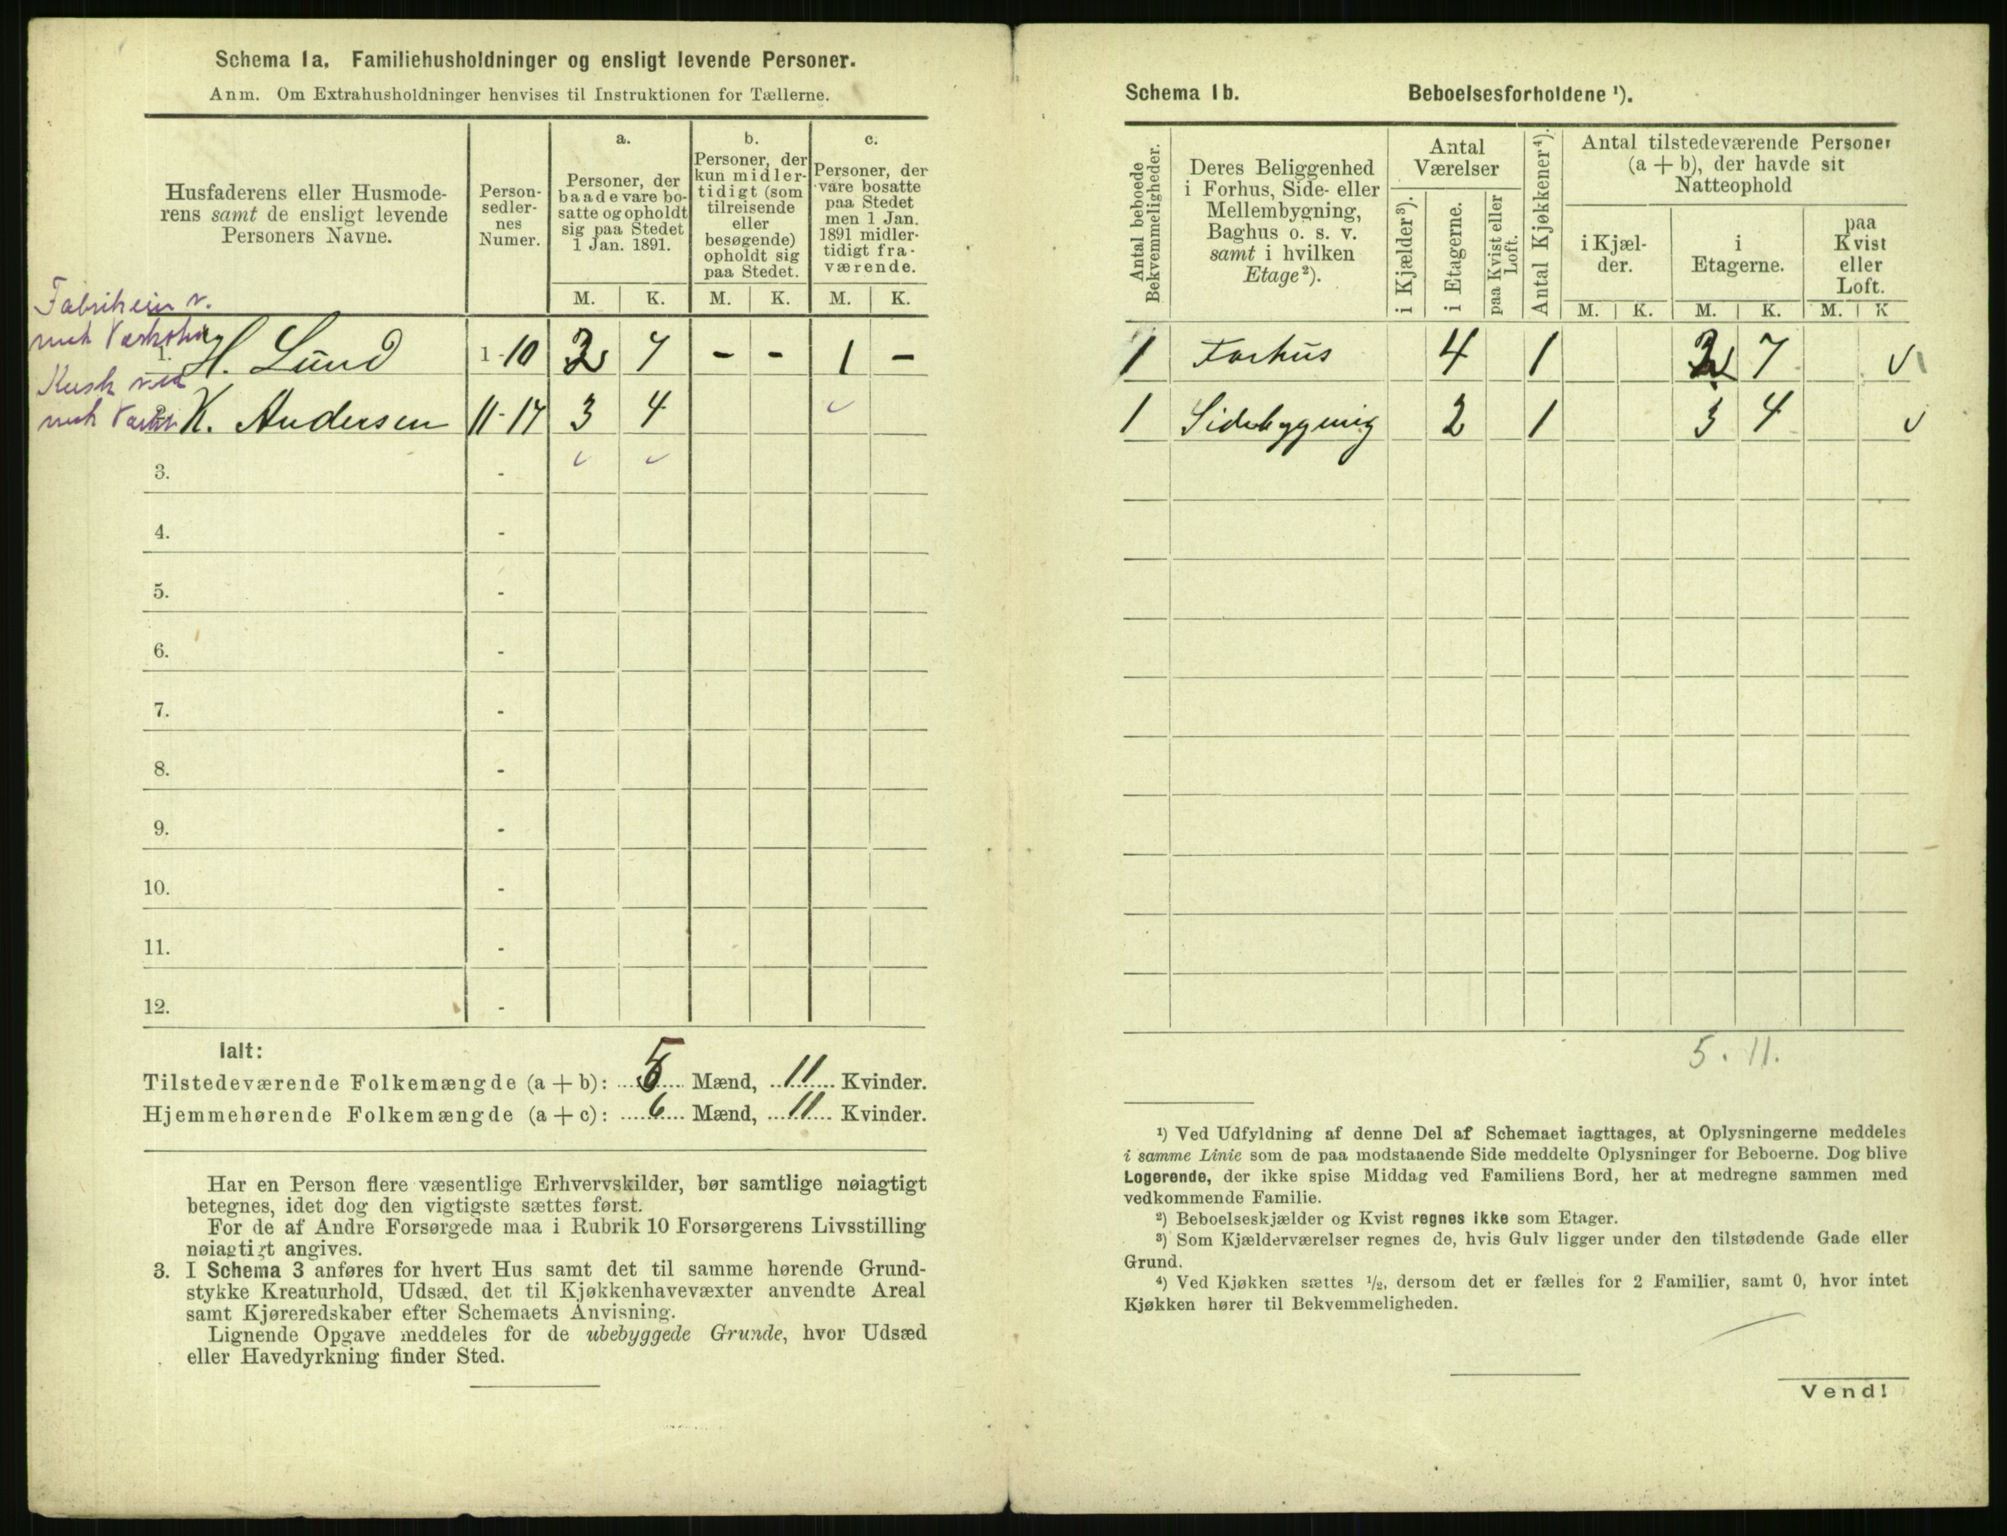 Schema 1a. Familiehusholdninger og ensligt levende Personer.
Anm. Om Extrahusholdninger henvises til Instruktionen for Tællerne.
Husfaderens eller Husmode-
rens samt de ensligt levende
Personers Navne.
Person-
sedler-
nes
Numer.
a.
Personer, der
baade vare bo-
satte og opholdt
sig paa Stedet
1 Jan. 1891.
b.
Personer, der
kun midler-
tidigt (som
tilreisende
eller
besøgende)
opholdt sig
paa Stedet.
c.
Personer, der
vare bosatte
paa Stedet
men 1 Jan.
1891 midler-
tidigt fra-
værende.
M. K. M. K. M. K.
mek
1. H. Lund 1-10 2 7 - - 1 -
Kusk ved
mek
2. K. Andersen 11-17 3 4
3. -
4. -
5. -
6. -
7. -
8. -
9. -
10. -
11. -
12. -
Ialt:
Tilstedeværende Folkemængde (a + b): 5 Mænd, 11 Kvinder.
Hjemmehørende Folkemængde (a + c): 6 Mænd, 11 Kvinder.
Har en Person flere væsentlige Erhvervskilder, bør samtlige nøiagtigt
betegnes, idet dog den vigtigste sættes først.
For de af Andre Forsørgede maa i Rubrik 10 Forsørgerens Livsstilling
nøiagtigt angives.
3. I Schema 3 anføres for hvert Hus samt det til samme hørende Grund-
stykke Kreaturhold, Udsæd, det til Kjøkkenhavevæxter anvendte Areal
samt Kjøreredskaber efter Schemaets Anvisning.
Lignende Opgave meddeles for de ubebyggede Grunde, hvor Udsæd
eller Havedyrkning finder Sted.
Schema 1b. Beboelsesforholdene ¹).
Antal beboede
Bekvemmeligheder.
Deres Beliggenhed
i Forhus, Side- eller
Mellembygning,
Baghus o. s. v.
samt i hvilken
Etage²).
Antal
Værelser
i Kjælder³).
i Etagerne.
paa Kvist eller
Loft.
Antal Kjøkkener⁴).
Antal tilstedeværende Personer
(a + b), der havde sit
Natteophold
i Kjæl-
der.
i
Etagerne.
paa
Kvist
eller
Loft.
M. K. M. K. M. K
1 Forhus 4 1 2 7
1 Sidebygning 2 1 3 4
5. 11.
¹) Ved Udfyldning af denne Del af Schemaet iagttages, at Oplysningerne meddeles
i samme Linie som de paa modstaaende Side meddelte Oplysninger for Beboerne. Dog blive
Logerende, der ikke spise Middag ved Familiens Bord, her at medregne sammen med
vedkommende Familie.
²) Beboelseskjælder og Kvist regnes ikke som Etager.
³) Som Kjælderværelser regnes de, hvis Gulv ligger under den tilstødende Gade eller
Grund.
⁴) Ved Kjøkken sættes ½, dersom det er fælles for 2 Familier, samt 0, hvor intet
Kjøkken hører til Bekvemmeligheden.
Vend!